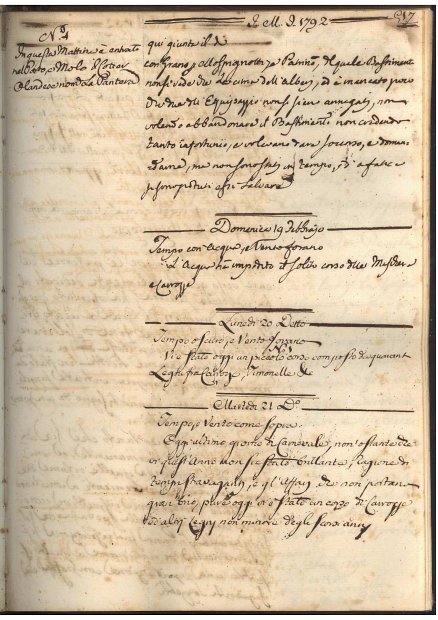 1792
No.
In questa Mattina è entrato
nel Porto, e Molo
Olandese nom.ta La Pantera
qui giunto il
con grano, e
non si vede che le cime dell'Alberi, ed è mancato poco
che due di Equipaggio non si sieno annegati, non
volendo abbandonare il Bastimento non credendo
tanto infortunio, e volevano dare soccorso, e doman
darne, ma non sono stati in tempo, e a fatica
si sono potuti essi salvare
Domenica 19 Febbrajo
Tempo con acqua, e Vento forano
L'Acqua ha impedito il solito corso delle Maschere
e Carozze
Lunedi 20 Detto
Tempo oscuro, e Vento forano
Vi è stato oggi un piccolo corso composto da quarant
Legni fra Carozze, Timonelle &c
Martedi 21 D.o
Tempo, e Vento come sopra.
Oggi ultimo giorno di Carnevale, non ostante che
in quest'Anno non sia stato brillante, a cagione di
tempi stravaganti, e gl'Affari che non portano
gran brio, pure oggi vi è stato un corso di Carozze
ed altri Legni non minore degli scorsi anni